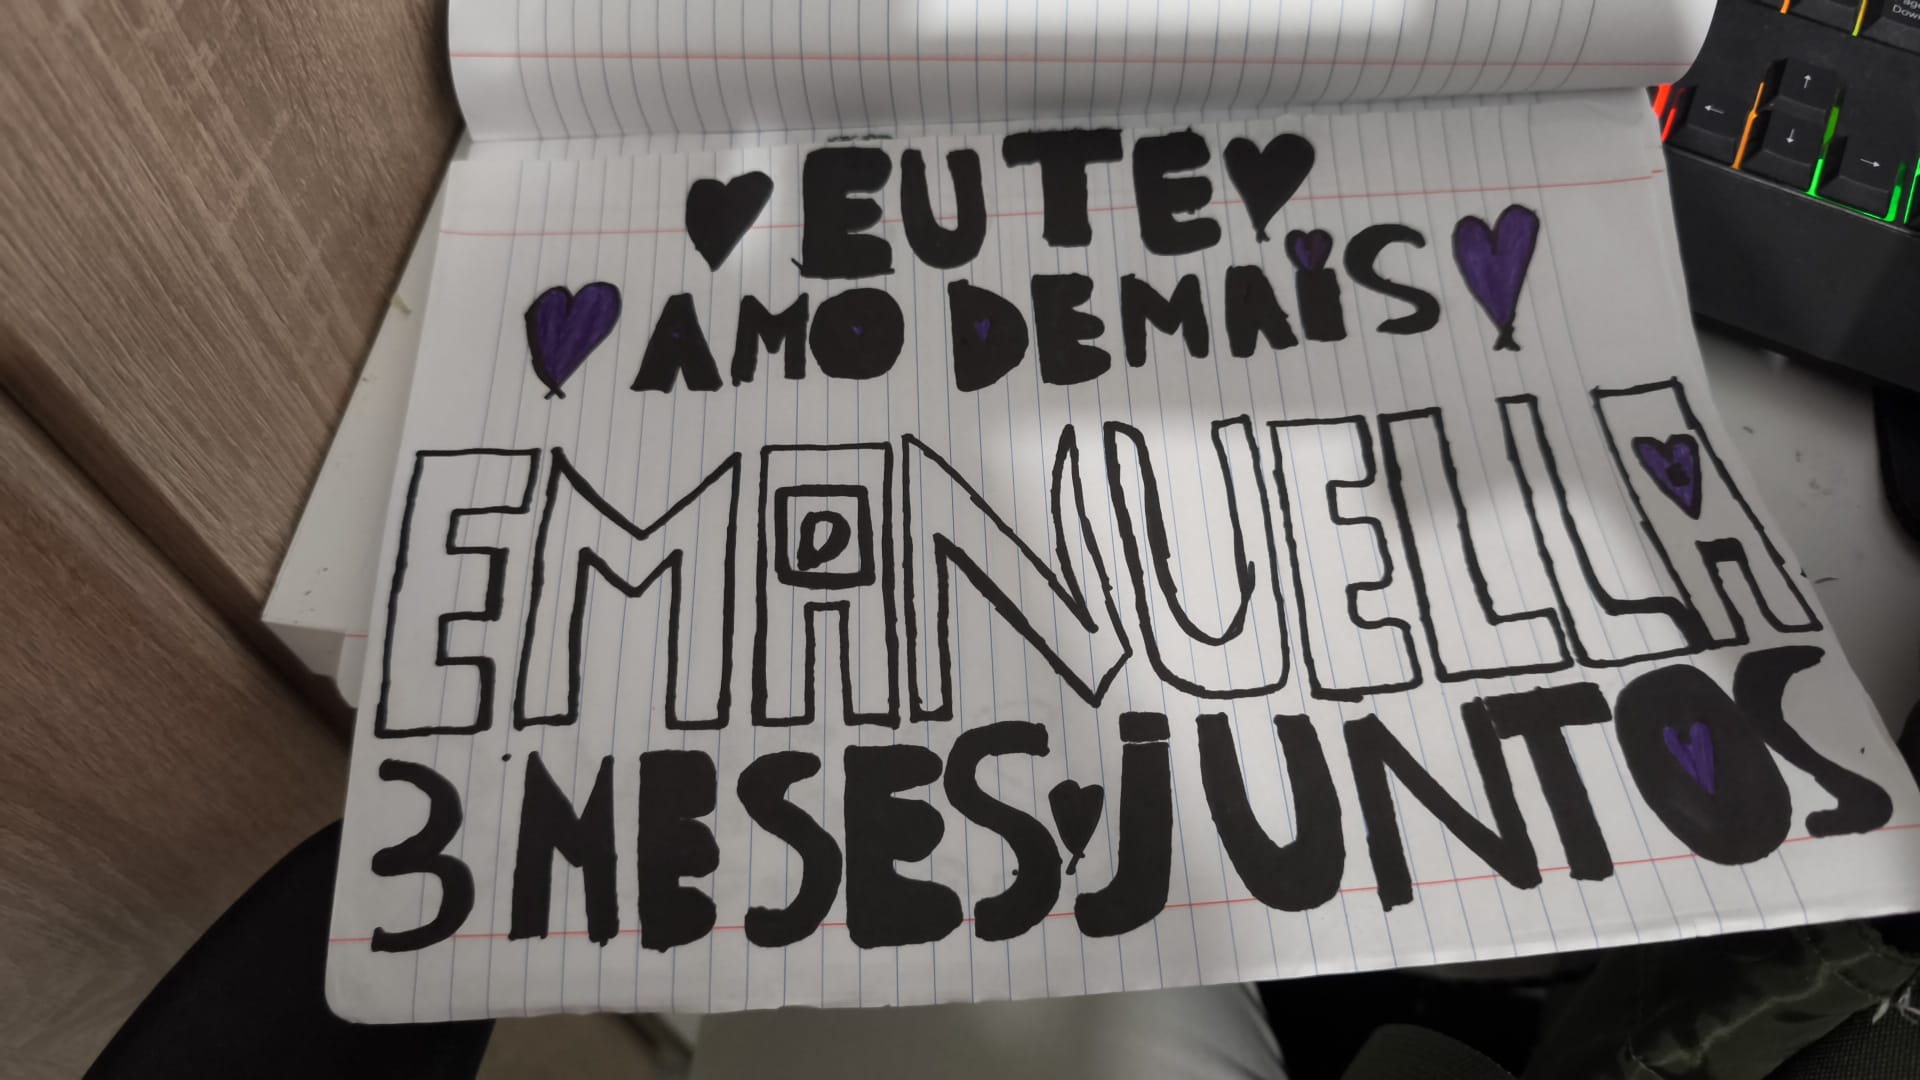 EU TE
AMO DEMAiS
EMANUELLA
3 MESES jUNTOS